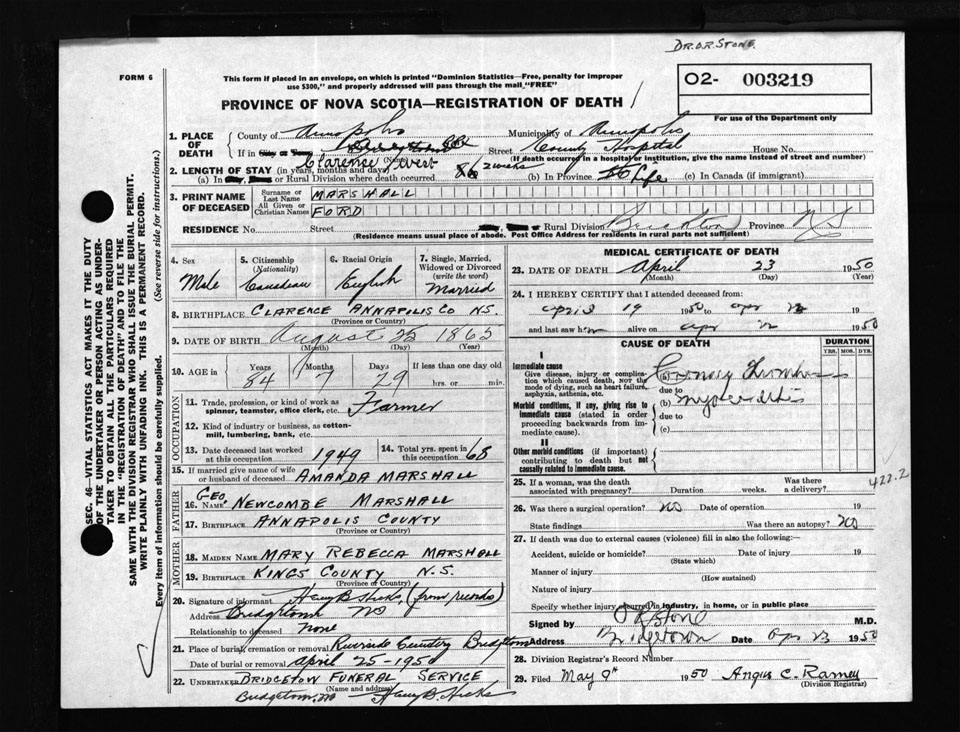 DR. O.R. STONE.
FORM 6
O2- 003219
This form if placed in an envelope, on which is printed "Dominion Statistics—Free, penalty for improper
use $300," and properly addressed will pass through the mail "FREE"
PROVINCE OF NOVA SCOTIA—REGISTRATION OF DEATH
For use of the Department only
1. PLACE OF DEATH
County of Annapolis
Municipality of Annapolis
If in City or Town
Street County Hospital House No.
(If death occurred in a hospital or institution, give the name instead of street and number)
Clarence
2. LENGTH OF STAY (in years, months and days)
(a) In City, Town or Rural Division where death occurred 2 weeks
(b) In Province Life (c) In Canada (if immigrant)
3. PRINT NAME OF DECEASED
Surname or Last Name MARSHALL
All Given or Christian Names FORD
RESIDENCE No. Street Rural Division Province NS
(Residence means usual place of abode. Post Office Address for residents in rural parts not sufficient)
4. Sex Male
5. Citizenship (Nationality) Canadian
6. Racial Origin English
7. Single, Married, Widowed or Divorced (write the word) Married
8. BIRTHPLACE CLARENCE ANNAPOLIS CO NS.
(Province or Country)
9. DATE OF BIRTH August 25 1865
(Month) (Day) (Year)
10. AGE in Years 84 Months 7 Days 29 If less than one day old hrs. or min.
OCCUPATION
11. Trade, profession, or kind of work as spinner, teamster, office clerk, etc. Farmer
12. Kind of industry or business, as cotton-mill, lumbering, bank, etc.
13. Date deceased last worked at this occupation 1949
14. Total yrs. spent in this occupation 68
15. If married give name of wife or husband of deceased AMANDA MARSHALL
FATHER
16. NAME GEO. NEWCOMBE MARSHALL
17. BIRTHPLACE ANNAPOLIS COUNTY
(Province or Country)
MOTHER
18. MAIDEN NAME MARY REBECCA MARSHALL
19. BIRTHPLACE KINGS COUNTY N.S.
(Province or Country)
20. Signature of informant Harry B. Hicks, (from records)
Address Bridgetown NS
Relationship to deceased None
21. Place of burial, cremation or removal Riverside Cemetery Bridgetown
Date of burial or removal April 25-1950
22. UNDERTAKER BRIDGETOWN FUNERAL SERVICE
(Name and address)
Bridgetown, NS Harry B. Hicks
MEDICAL CERTIFICATE OF DEATH
23. DATE OF DEATH April 23 1950
(Month) (Day) (Year)
24. I HEREBY CERTIFY that I attended deceased from:
April 19 1950 to apr 23
and last saw him alive on apr 1950
CAUSE OF DEATH
DURATION
YRS. MOS. DYS.
I
Immediate cause
Give disease, injury or complication which caused death, not the mode of dying, such as heart failure, asphyxia, asthenia, etc.
(a) Coronary Thrombosis
due to
Morbid conditions, if any, giving rise to immediate cause (stated in order proceeding backwards from immediate cause).
(b) myocarditis
due to
(c)
II
Other morbid conditions (if important) contributing to death but not causally related to immediate cause.
25. If a woman, was the death associated with pregnancy? Duration weeks. Was there a delivery?
422.2
26. Was there a surgical operation? No Date of operation 19
State findings Was there an autopsy? No
27. If death was due to external causes (violence) fill in also the following:—
Accident, suicide or homicide? Date of injury 19
(State which)
Manner of injury
(How sustained)
Nature of injury
Specify whether injury occurred in industry, in home, or in public place
Signed by O R Stone M.D.
Address Bridgetown Date Apr 23 1950
28. Division Registrar's Record Number
29. Filed May 9th 1950 Angus C. Ramey
(Division Registrar)
SEC. 46—VITAL STATISTICS ACT MAKES IT THE DUTY
OF THE UNDERTAKER OR PERSON ACTING AS UNDERTAKER TO OBTAIN ALL THE PARTICULARS REQUIRED
IN THE "REGISTRATION OF DEATH" AND TO FILE THE
SAME WITH THE DIVISION REGISTRAR WHO SHALL ISSUE THE BURIAL PERMIT.
WRITE PLAINLY WITH UNFADING INK. THIS IS A PERMANENT RECORD.
Every item of information should be carefully supplied. (See reverse side for instructions.)